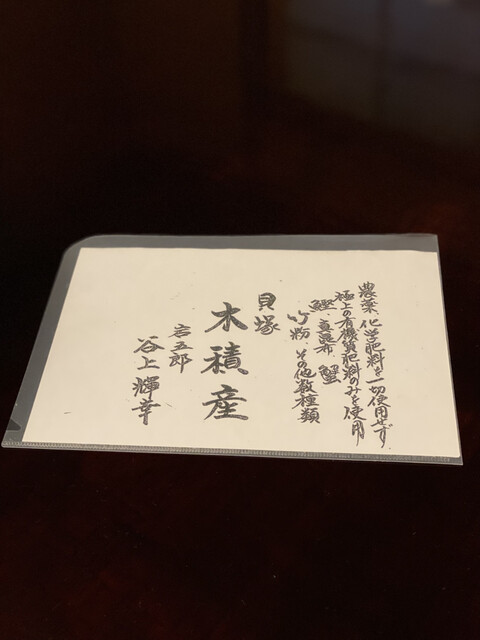 農薬、化学肥料を一切使用せず、
極上の有機質肥料のみを使用
鰹・真昆布 蟹
竹粉・その他数種類
貝塚
木積産
吉五郎
谷上輝幸